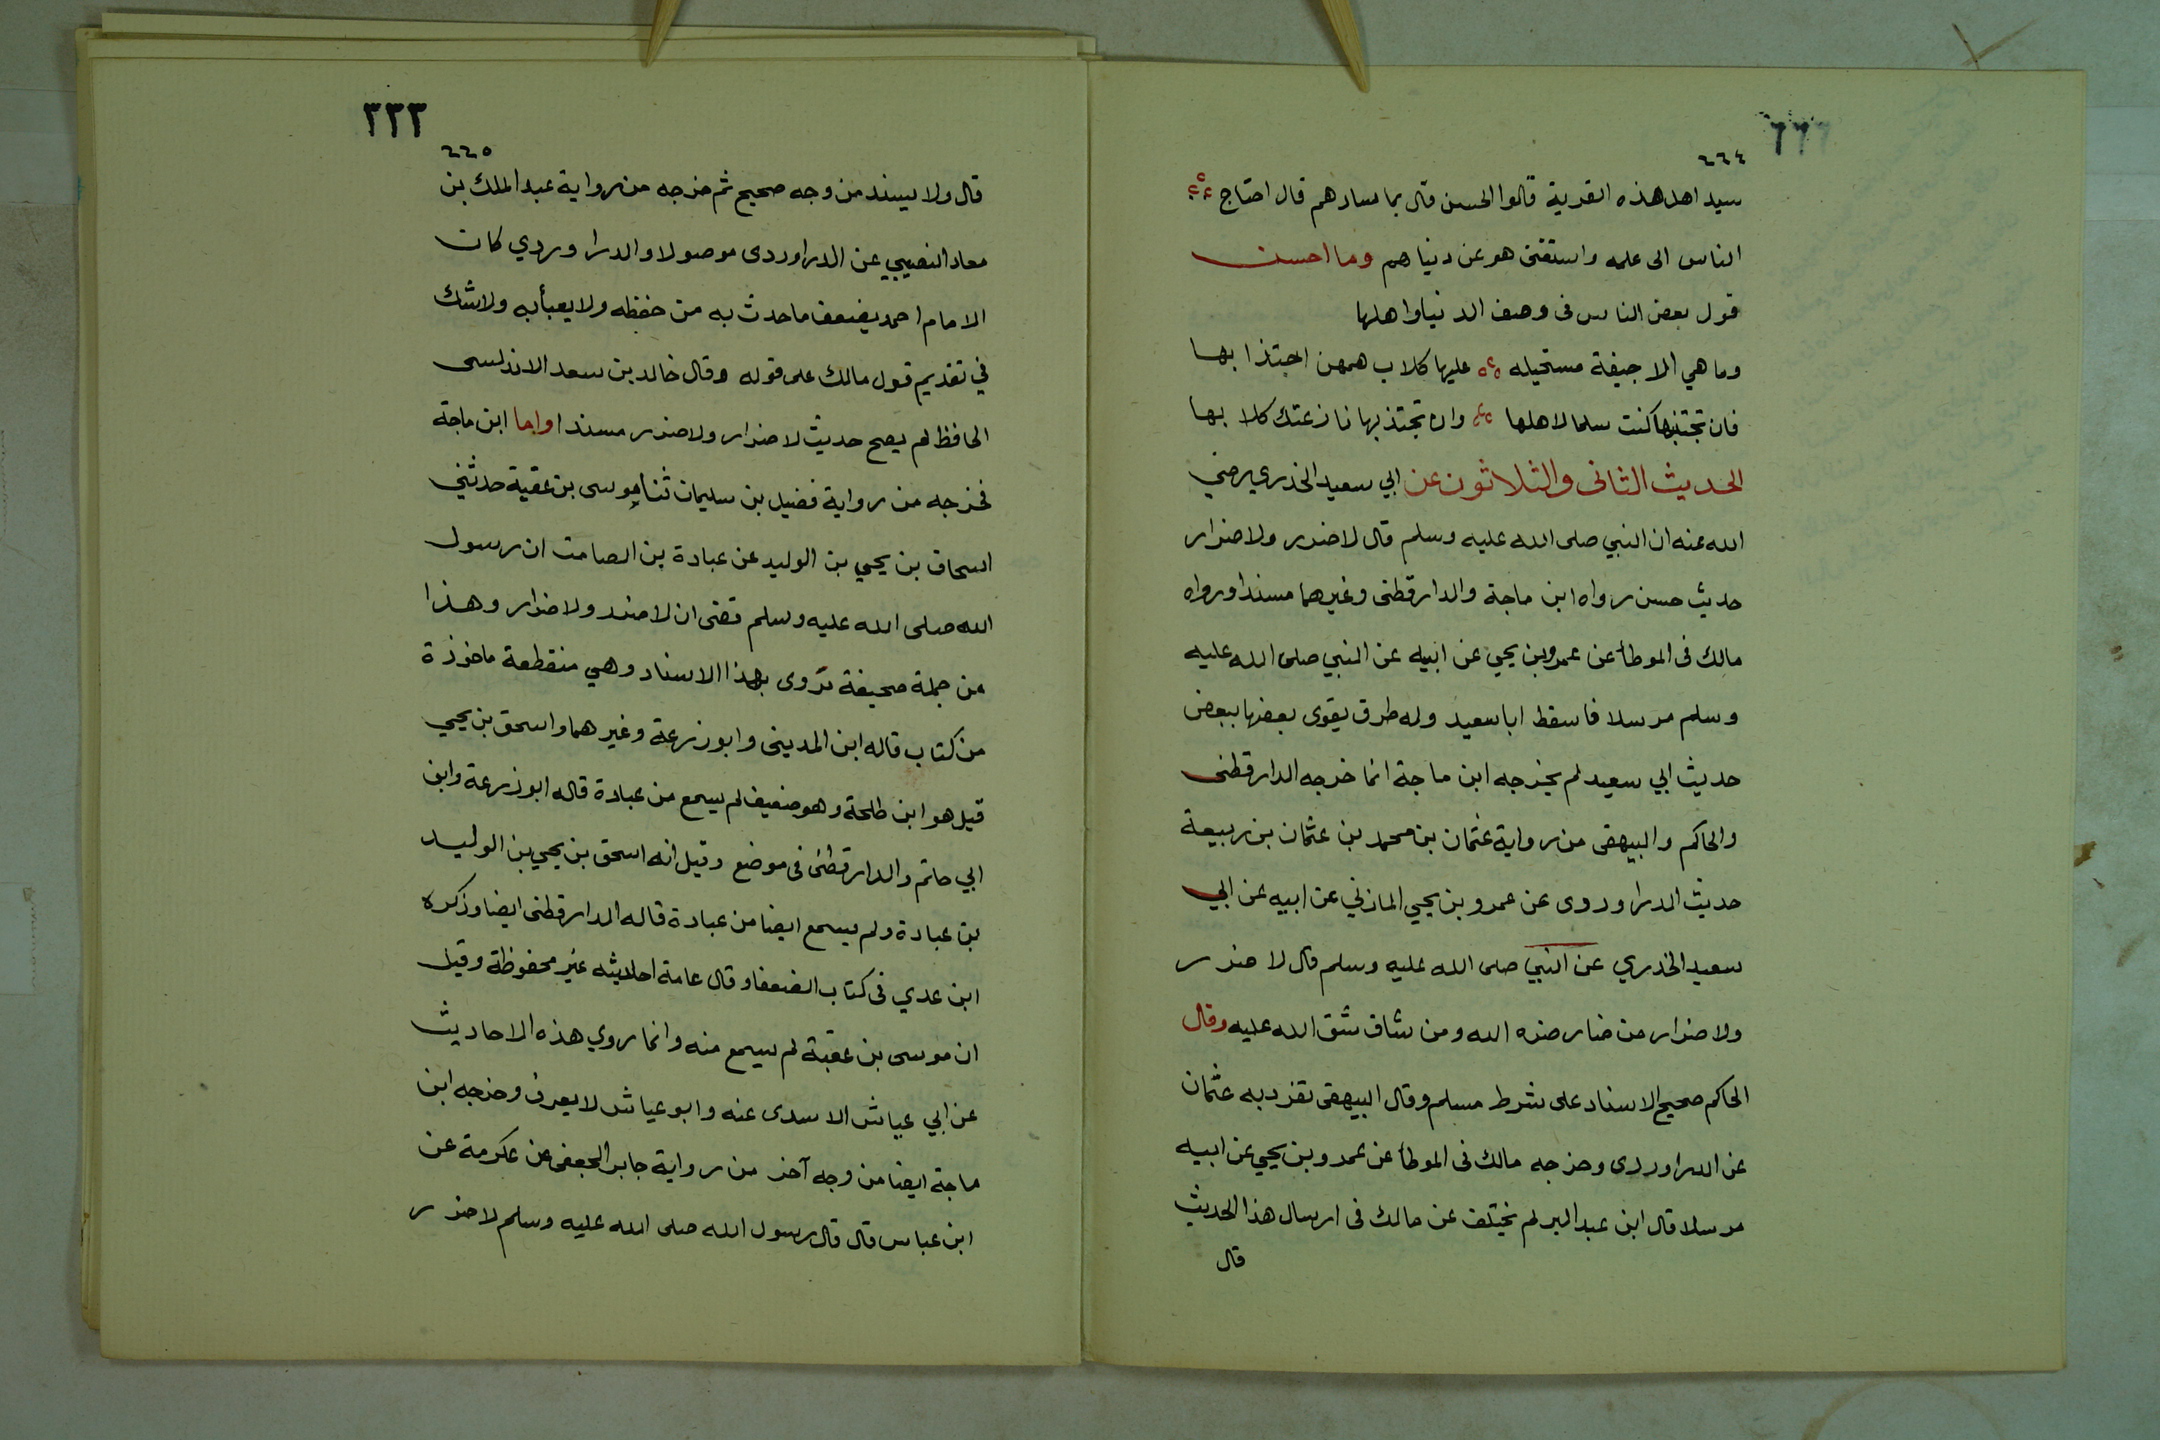 ٦٦٦
٦٦٤
سيد اهل هذه القرية قالوا الحسن قال بما سادهم قال احتاج
الناس الى علمه واستغنى هو عن دنياهم وما احسن
قول بعض الناس فى وصف الدنيا واهلها
وما هي الا جيفة مستحيله عليها كلاب همهن اجتذابها
فان تجتنبها كنت سلما لاهلها وان تجتذبها نازعتك كلابها
الحديث الثانى والثلاثون عن ابي سعيد الخدري رضي
الله عنه ان النبي صلى الله عليه وسلم قال لا ضرر ولا ضرار
حديث حسن رواه ابن ماجة والدارقطنى وغيرهما مسندا ورواه
مالك فى الموطأ عن عمرو بن يحيى عن ابيه عن النبي صلى الله عليه
وسلم مرسلا فاسقط ابا سعيد وله طرق يقوى بعضها ببعض
حديث ابي سعيد لم يخرجه ابن ماجة انما خرجه الدارقطنى
والحاكم والبيهقى من رواية عثمان بن محمد بن عثمان بن ربيعة
حديث الدراوردى عن عمرو بن يحيي المازني عن ابيه عن ابي
سعيد الخدري عن النبي صلى الله عليه وسلم قال لا ضرر
ولا ضرار من ضار ضره الله ومن شاق شق الله عليه وقال
الحاكم صحيح الاسناد على شرط مسلم وقال البيهقى تفرد به عثمان
عن الدراوردى وخرجه مالك فى الموطأ عن عمرو بن يحيي عن ابيه
مرسلا قال ابن عبد البر لم يختلف عن مالك فى ارسال هذا الحديث
قال
٣٣٣
٦٦٥
قال ولا يسند من وجه صحيح ثم خرجه من رواية عبد الملك بن
معاد النصيبي عن الدراوردى موصولا والدراوردي كان
الامام احمد يضعف ما حدث به من حفظه ولا يعبأ به ولا شك
في تقديم قول مالك على قوله وقال خالد بن سعد الاندلسى
الحافظ لم يصح حديث لا ضرار ولا ضرر مسندا واما ابن ماجة
فخرجه من رواية فضيل بن سليمان ثنا موسى بن عقبة حدثني
اسحاق بن يحيي بن الوليد عن عبادة بن الصامت ان رسول
الله صلى الله عليه وسلم قضى ان لا ضرر ولا ضرار وهذا
من جملة صحيفة تروى بهذا الاسناد وهي منقطعة ماخوذة
من كتاب قاله ابن المدينى وابو زرعة وغيرهما واسحق بن يحيي
قيل هو ابن طلحة وهو ضعيف لم يسمع من عبادة قاله ابو زرعة وابن
ابي حاتم والدارقطنى فى موضع وقيل انه اسحق بن يحيي بن الوليد
بن عبادة ولم يسمع ايضا من عبادة قاله الدارقطنى ايضا وذكره
ابن عدي فى كتاب الضعفا وقال عامة احاديثه غير محفوظة وقيل
ان موسى بن عقبة لم يسمع منه وانما روي هذه الاحاديث
عن ابي عياش الاسدى عنه وابو عياش لا يعرف وخرجه ابن
ماجة ايضا من وجه آخر من رواية جابر الجعفى عن عكرمة عن
ابن عباس قال قال رسول الله صلى الله عليه وسلم لا ضرر